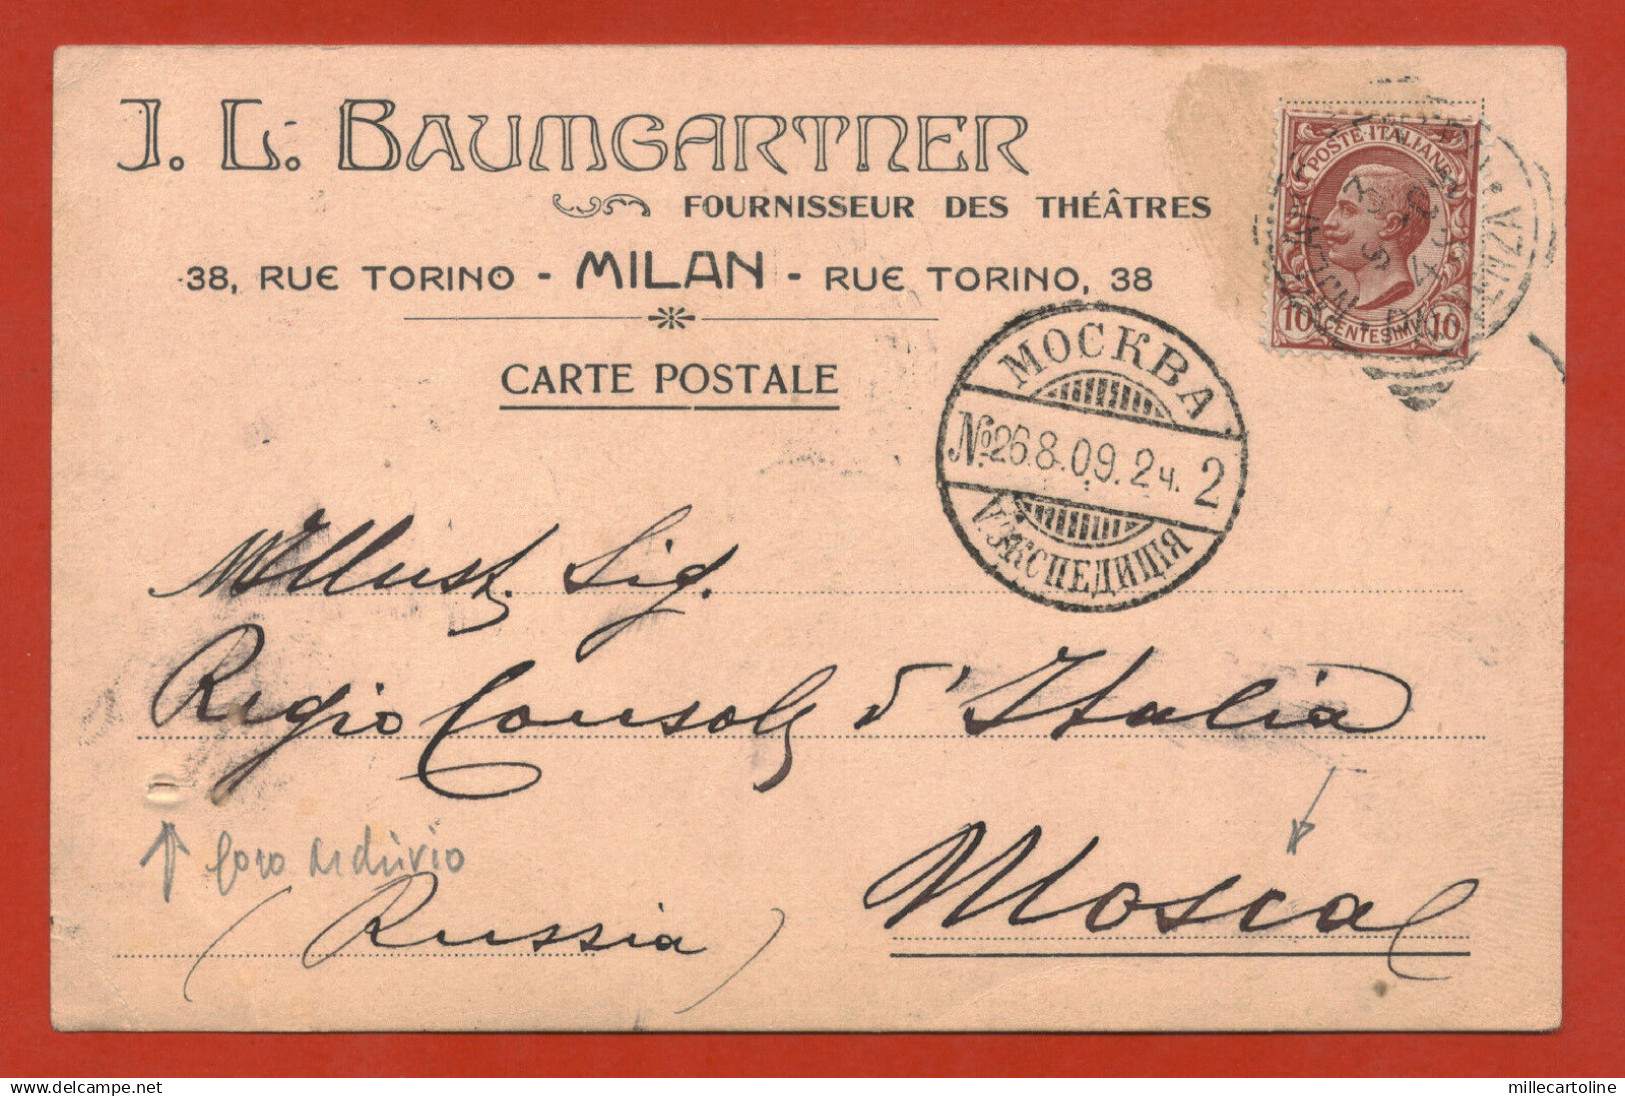 J. L. BAUMGARTNER
FOURNISSEUR DES THÉÂTRES
38, RUE TORINO - MILAN - RUE TORINO, 38
CARTE POSTALE
POSTE·ITALIANE
10 CENTESIMI 10
МОСКВА
№26.8.09.2ч. 2
ЭКСПЕДИЦІЯ
Illust. Sig.
Regio Consol d'Italia
Mosca
foro archivio
(Russia)
millecartoline